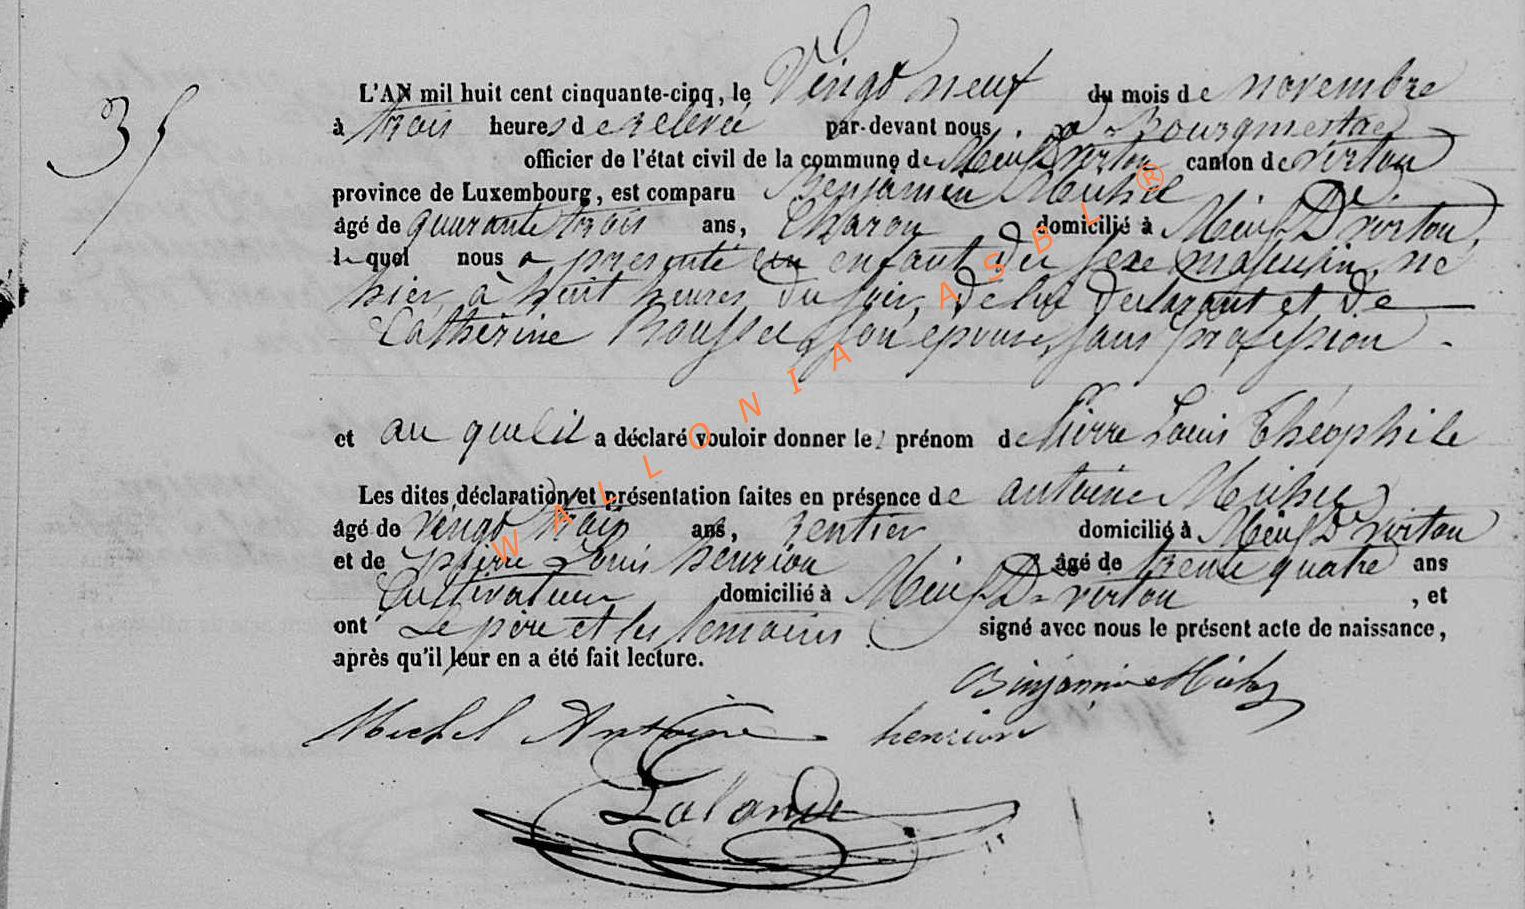 35
L'AN mil huit cent cinquante-cinq, le Vingt neuf du mois de novembre
à trois heures de relevée par-devant nous Bourgmestre
officier de l'état civil de la commune de Meix Dt virton canton de virton
province de Luxembourg, est comparu Benjamin Michel
âgé de quarante trois ans, Charon domicilié à Meix Dt virton,
lequel nous a présenté un enfant du sexe masculin, né
hier, à huit heures du soir, de lui déclarant et de
Catherine son épouse, sans profession
et au quel il a déclaré vouloir donner les prénoms de Pierre Louis Théophile
Les dites déclaration et présentation faites en présence de antoine Michel
âgé de vingt trois ans, rentier domicilié à Meix Dt virton
et de pierre Louis henrion âgé de trente quatre ans
Cultivateur domicilié à Meix Dt virton, et
ont Le père et les temoins signé avec nous le présent acte de naissance,
après qu'il leur en a été fait lecture.
Binjamin Michel
Michel Antoine henrion
Lalande
WALLONIA ASBL ®